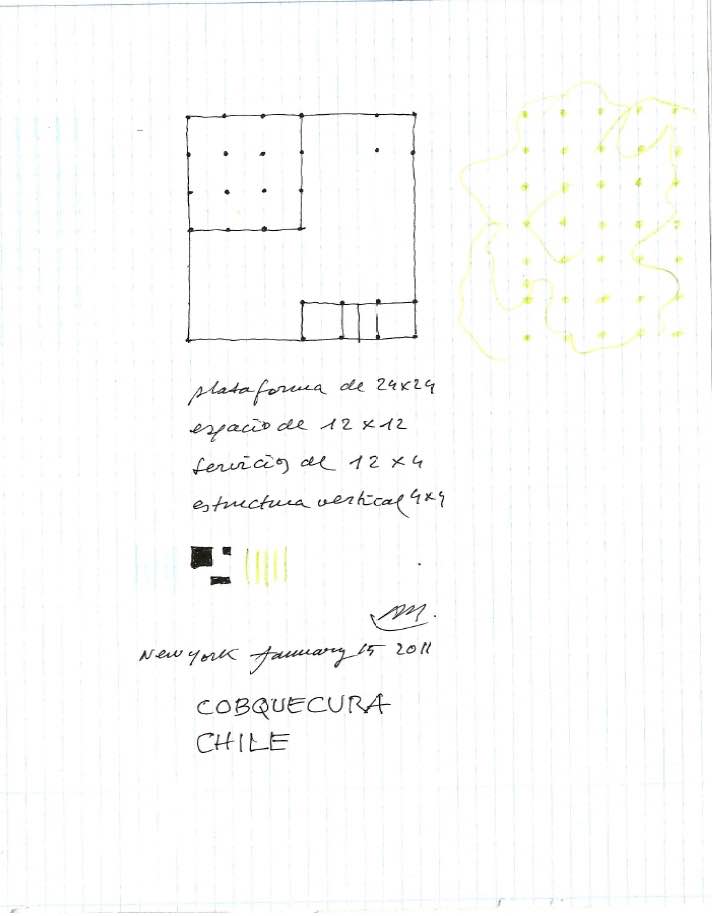 plataforma de 24x24
espacio de 12 x 12
servicios de 12 x 4
estructura vertical 4x4
AM.
New York January 15 2011
COBQUECURA
CHILE